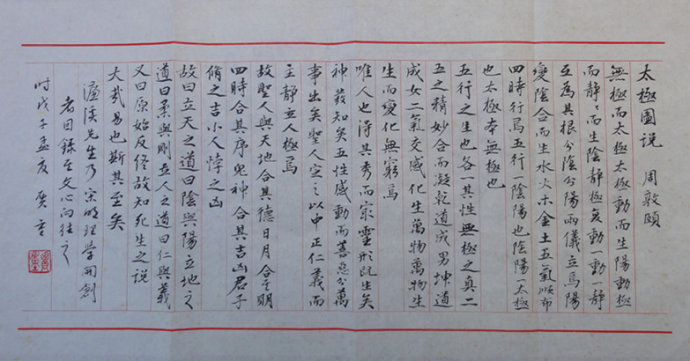 太極圖說 周敦頤
無極而太極太極動而生陽動極
而靜〻而生陰靜極復動一動一靜
互為其根分陰分陽兩儀立焉陽
變陰合而生水火木金土五氣順布
四時行焉五行一陰陽也陰陽一太極
也太極本無極也
五行之生也各一其性無極之真二
五之精妙合而凝乾道成男坤道
成女二氣交感化生萬物萬物生
生而變化無窮焉
唯人也得其秀而最靈形既生矣
神發知矣五性感動而善惡分萬
事出矣聖人定之以中正仁義而
主靜立人極焉
故聖人與天地合其德日月合其明
四時合其序鬼神合其吉凶君子
脩之吉小人悖之凶
故曰立天之道曰陰與陽立地之
道曰柔與剛立人之道曰仁與義
又曰原始反終故知死生之說
大哉易也斯其至矣
濂溪先生乃宋明理學開創
者因錄至文心向往之
時戊子孟夏